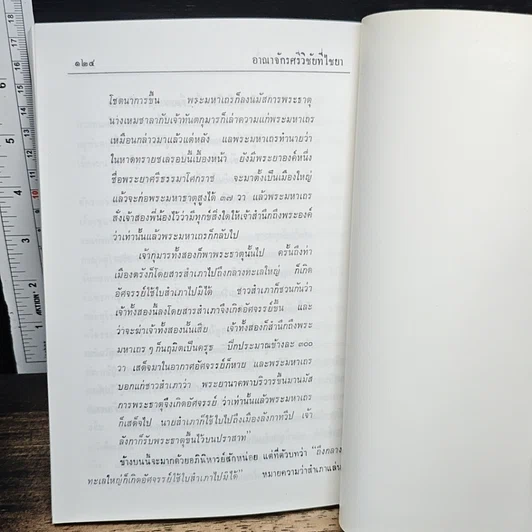 ๑๒๔ อาณาจักรศรีวิชัยที่ไชยา
โชตนาการขึ้น พระมหาเถรก็ลงนมัสการพระธาตุ
นางเหมชาลากับเจ้าทันตกุมารก็เล่าความแก่พระมหาเถร
เหมือนกล่าวมาแล้วแต่หลัง แลพระมหาเถรทำนายว่า
ในหาดทรายชเลรอบนี้เบื้องหน้า ยังมีพระยาองค์หนึ่ง
ชื่อพระยาศรีธรรมาโศกราช จะมาตั้งเป็นเมืองใหญ่
แล้วจะก่อพระมหาธาตุสูงได้ ๓๗ วา แล้วพระมหาเถร
สั่งเจ้าสองพี่น้องไว้ว่ามีทุกข์สิ่งใดให้เจ้าสำนึกถึงพระองค์
ว่าเท่านั้นแล้วพระมหาเถรก็กลับไป
เจ้ากุมารทั้งสองก็พาพระธาตุนั้นไป ครั้นถึงท่า
เมืองตรังก็โดยสารสำเภาไปถึงกลางทะเลใหญ่ ก็เกิด
อัศจรรย์ใช้ใบสำเภาไปมิได้ ชาวสำเภาก็ชวนกันว่า
เจ้าทั้งสองนี้ลงโดยสารสำเภาจึงเกิดอัศจรรย์ขึ้น และ
ว่าจะฆ่าเจ้าทั้งสองนั้นเสีย เจ้าทั้งสองก็สำนึกถึงพระ
มหาเถร ๆ ก็นฤมิตเป็นครุฑ ปีกประมาณข้างละ ๓๐๐
วา เสด็จมาในอากาศอัศจรรย์ก็หาย และพระมหาเถร
บอกแก่ชาวสำเภาว่า พระยานาคพาบริวารขึ้นมานมัส
การพระธาตุจึงเกิดอัศจรรย์ ว่าเท่านั้นแล้วพระมหาเถร
ก็เสด็จไป นายสำเภาก็ใช้ใบไปถึงเมืองลังกาทวีป เจ้า
ลังกาก็รับพระธาตุขึ้นไว้บนปราสาท"
ข้างบนนี้จะมากด้วยอภินิหารย์สักหน่อย แต่ที่ตัวบทว่า "ถึงกลาง
ทะเลใหญ่ก็เกิดอัศจรรย์ใช้ใบสำเภาไปมิได้" หมายความว่าสำเภาแล่น